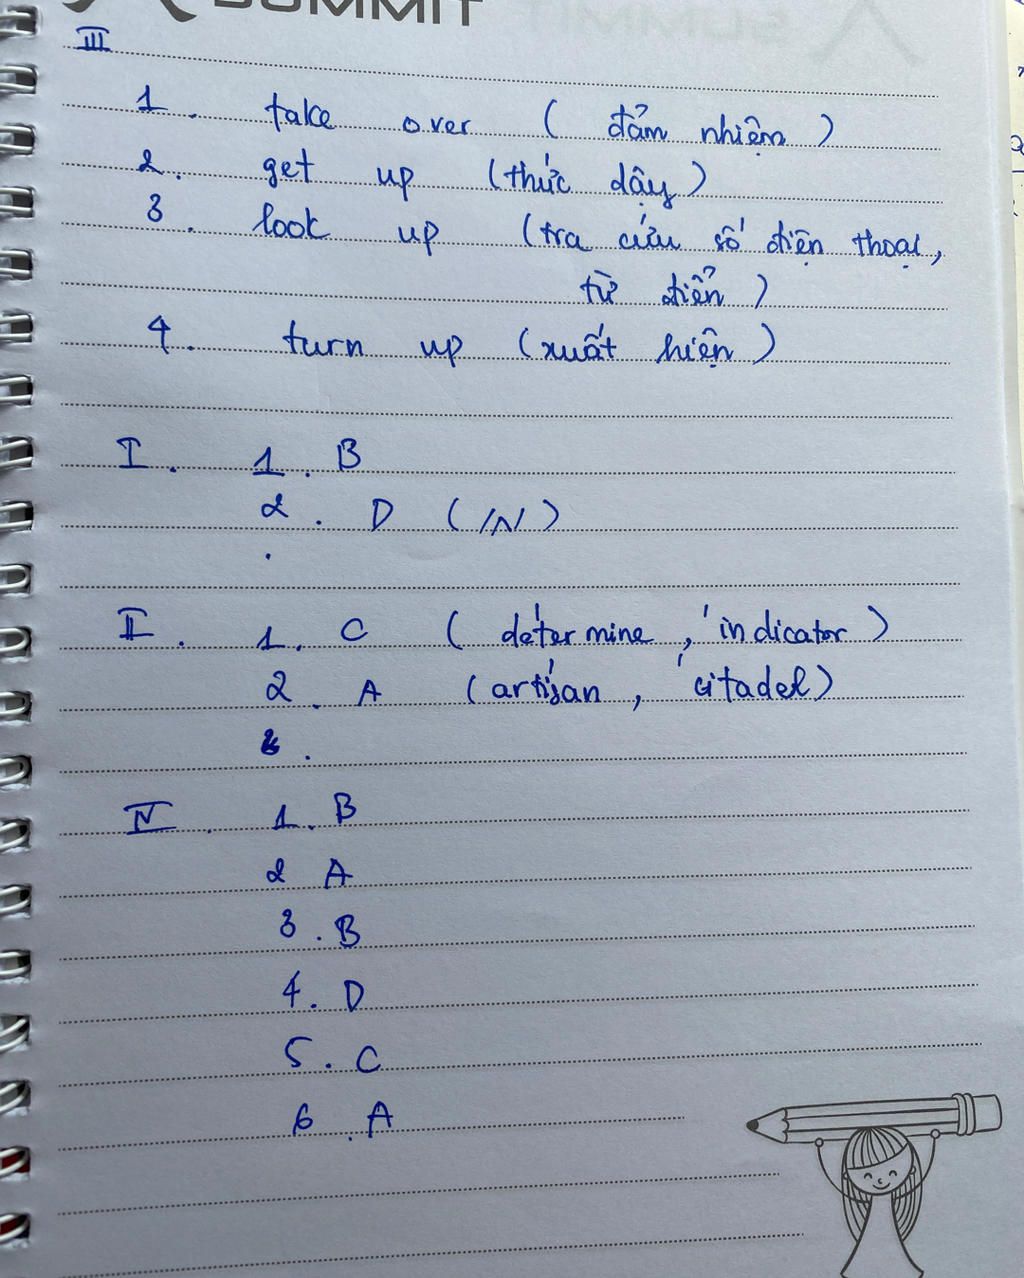 SUMMIT
III
1. take over (đảm nhiệm)
2. get up (thức dậy)
3. look up (tra cứu số điện thoại,
từ điển)
4. turn up (xuất hiện)
I. 1. B
2. D (/N/)
.
II. 1. C (de'termine, 'indicator)
2. A (arti'san, 'citadel)
.
IV. 1. B
2 A
3. B
4. D
5. C
6. A